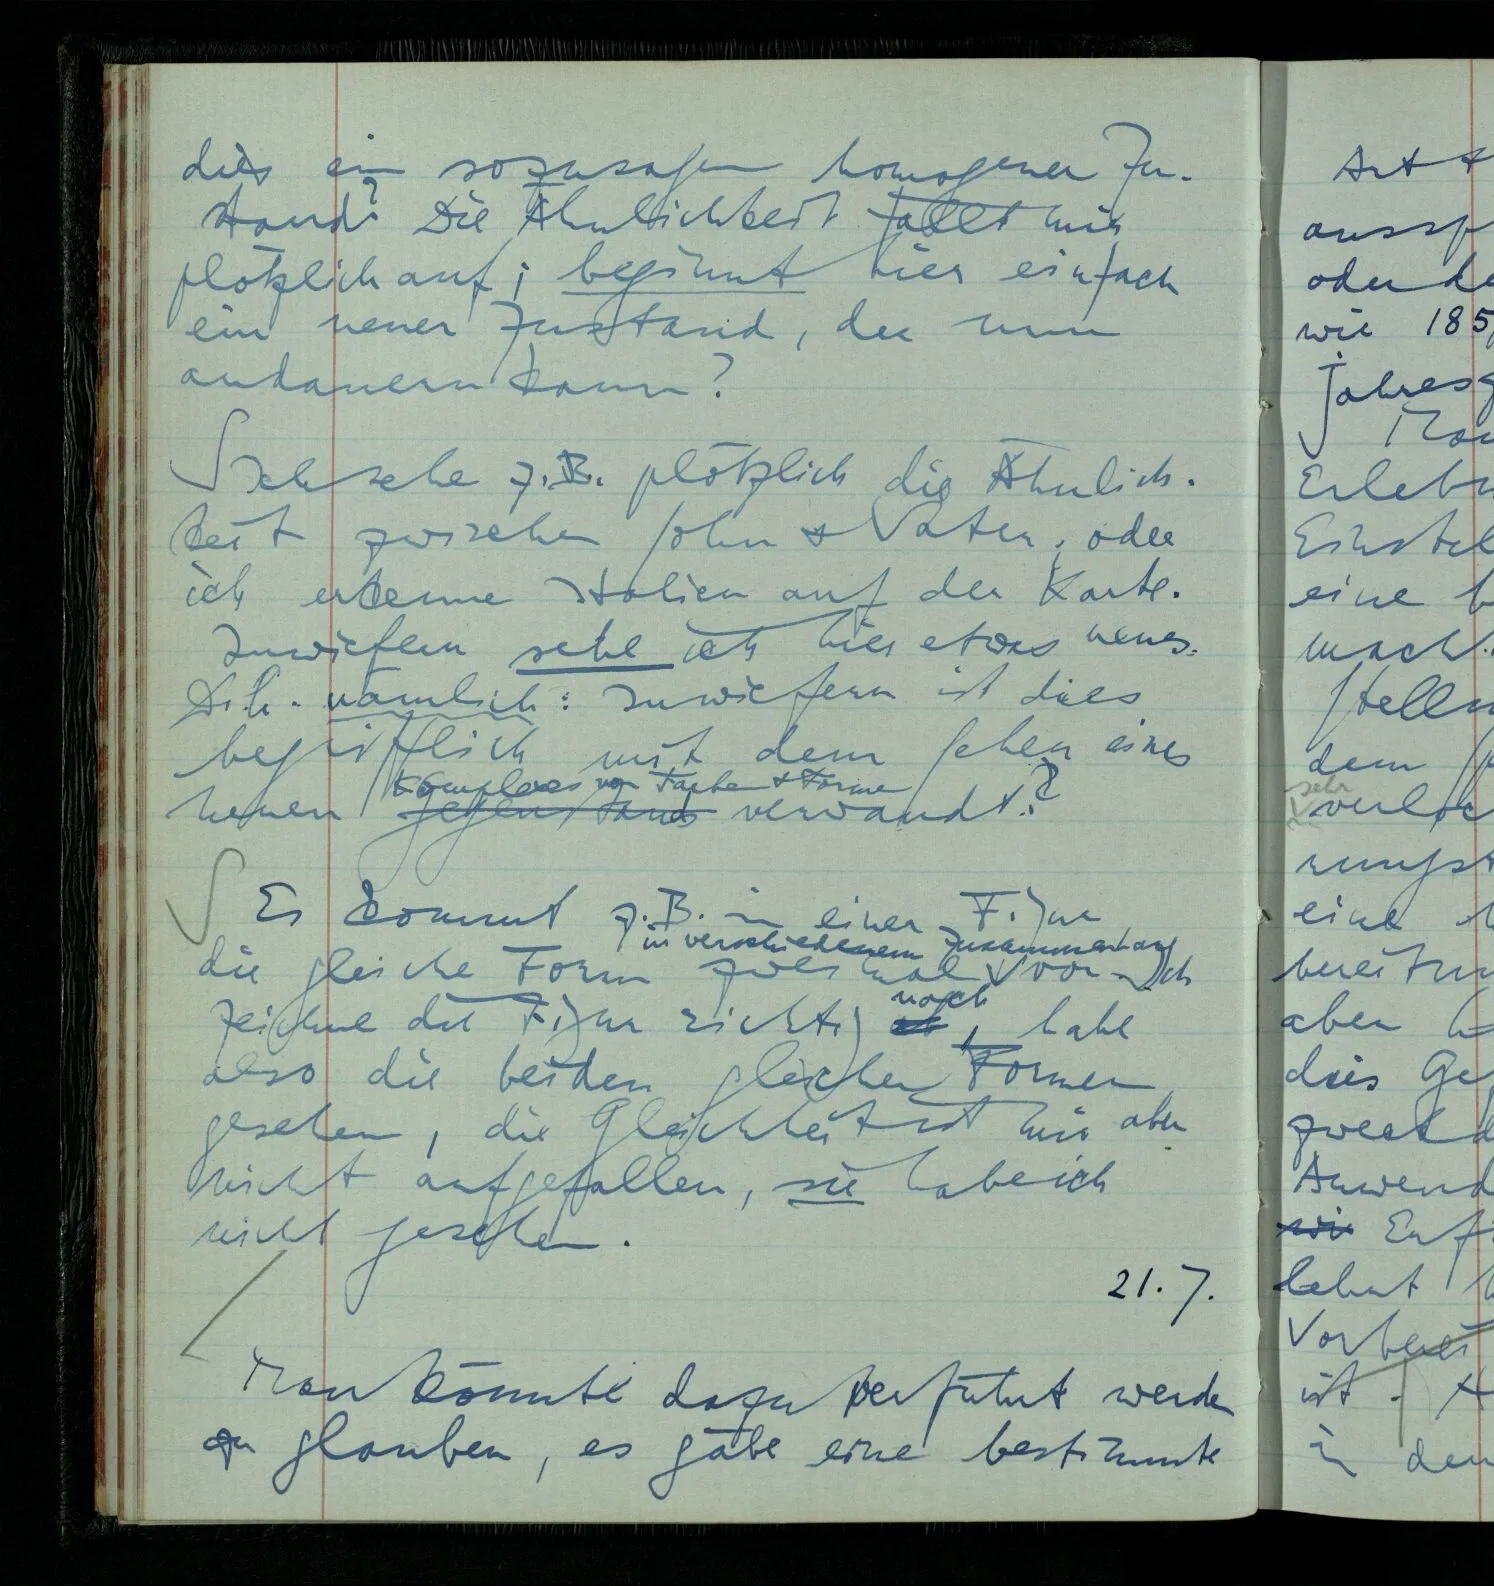 dies ein sozusagen homogener Zu-
stand? Die Ähnlichkeit fällt mir
plötzlich auf; beginnt hier einfach
ein neuer Zustand, der nun
andauern kann?
∫ Ich sehe z.B. plötzlich die Ähnlich-
keit zwischen Sohn & Vater; oder
ich erkenne Italien auf der Karte.
Inwiefern sehe ich hier etwas neues.
D.h. nämlich: Inwiefern ist dies
begrifflich mit dem Sehen eines
Komplexes von Farbe & Form
neuen Gegenstands verwandt?
∫ Es kommt z.B. in einer Figur
in verschiedenem Zusammenhang
die gleiche Form zweimal vor. Ich
nach
zeichne die Figur richtig, habe
also die beiden gleichen Formen
gesehen, die Gleichheit ist mir aber
nicht aufgefallen, sie habe ich
nicht gesehen.
21.7.
/ Man könnte dazu verführt werden
zu glauben, es gäbe eine bestimmte
Art
oder
wie 185
Jahres
Man
eine
mach
dem
sehr
eine
aber
dies
Vorberei
ist.
in den